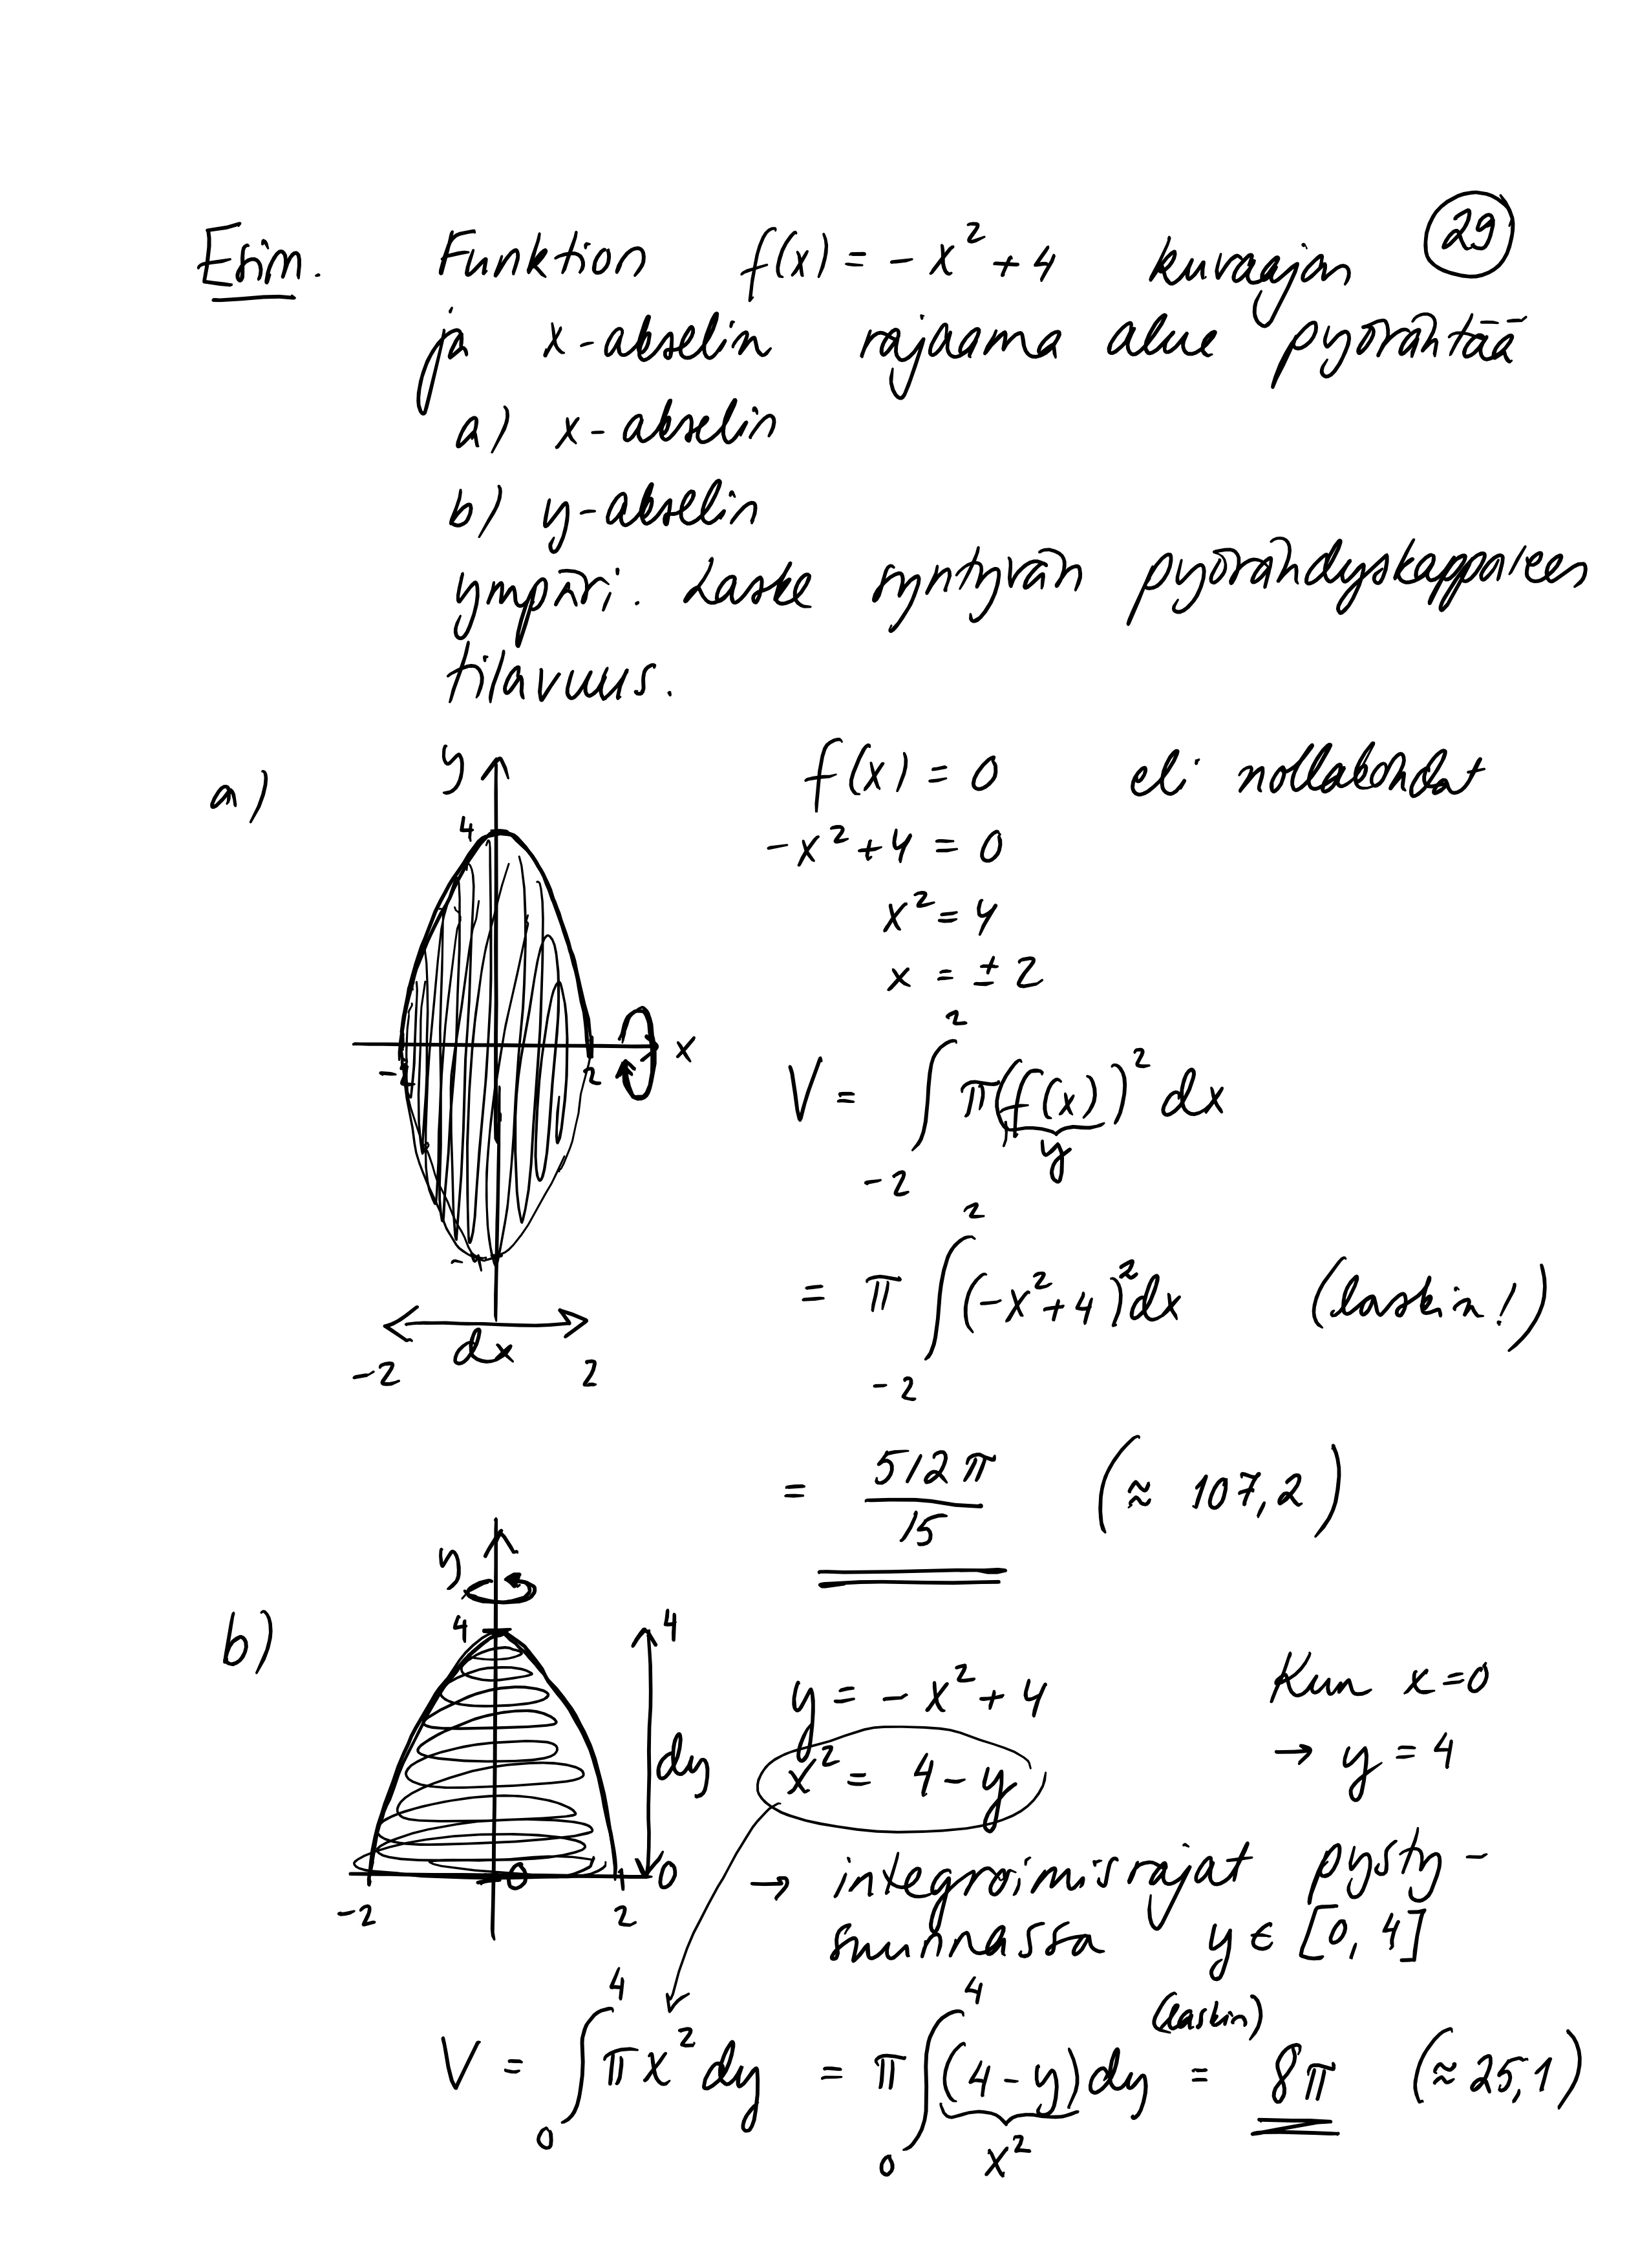 29
Esim. Funktion f(x) = -x² + 4 kuvaajan
ja x-akselin rajaama alue pyörähtää
a) x-akselin
b) y-akselin
ympäri. Laske syntyvän pyörähdyskappaleen
tilavuus.
a)
y
4
-2
2
x
-4
dx
-2
2
f(x) = 0 eli nollakohdat
-x² + 4 = 0
x² = 4
x = ± 2
V = ∫₋₂² π(f(x))² dx
y
= π ∫₋₂² (-x² + 4)² dx (laskin!)
= 512π/15 (≈ 107,2)
b)
y
4
4
dy
0
0
-2
2
y = -x² + 4 Kun x = 0
x² = 4 - y → y = 4
→ integroimisrajat pysty-
suunnassa y ∈ [0, 4]
(laskin)
V = ∫₀⁴ πx² dy = π ∫₀⁴ (4 - y) dy = 8π (≈ 25,1)
x²